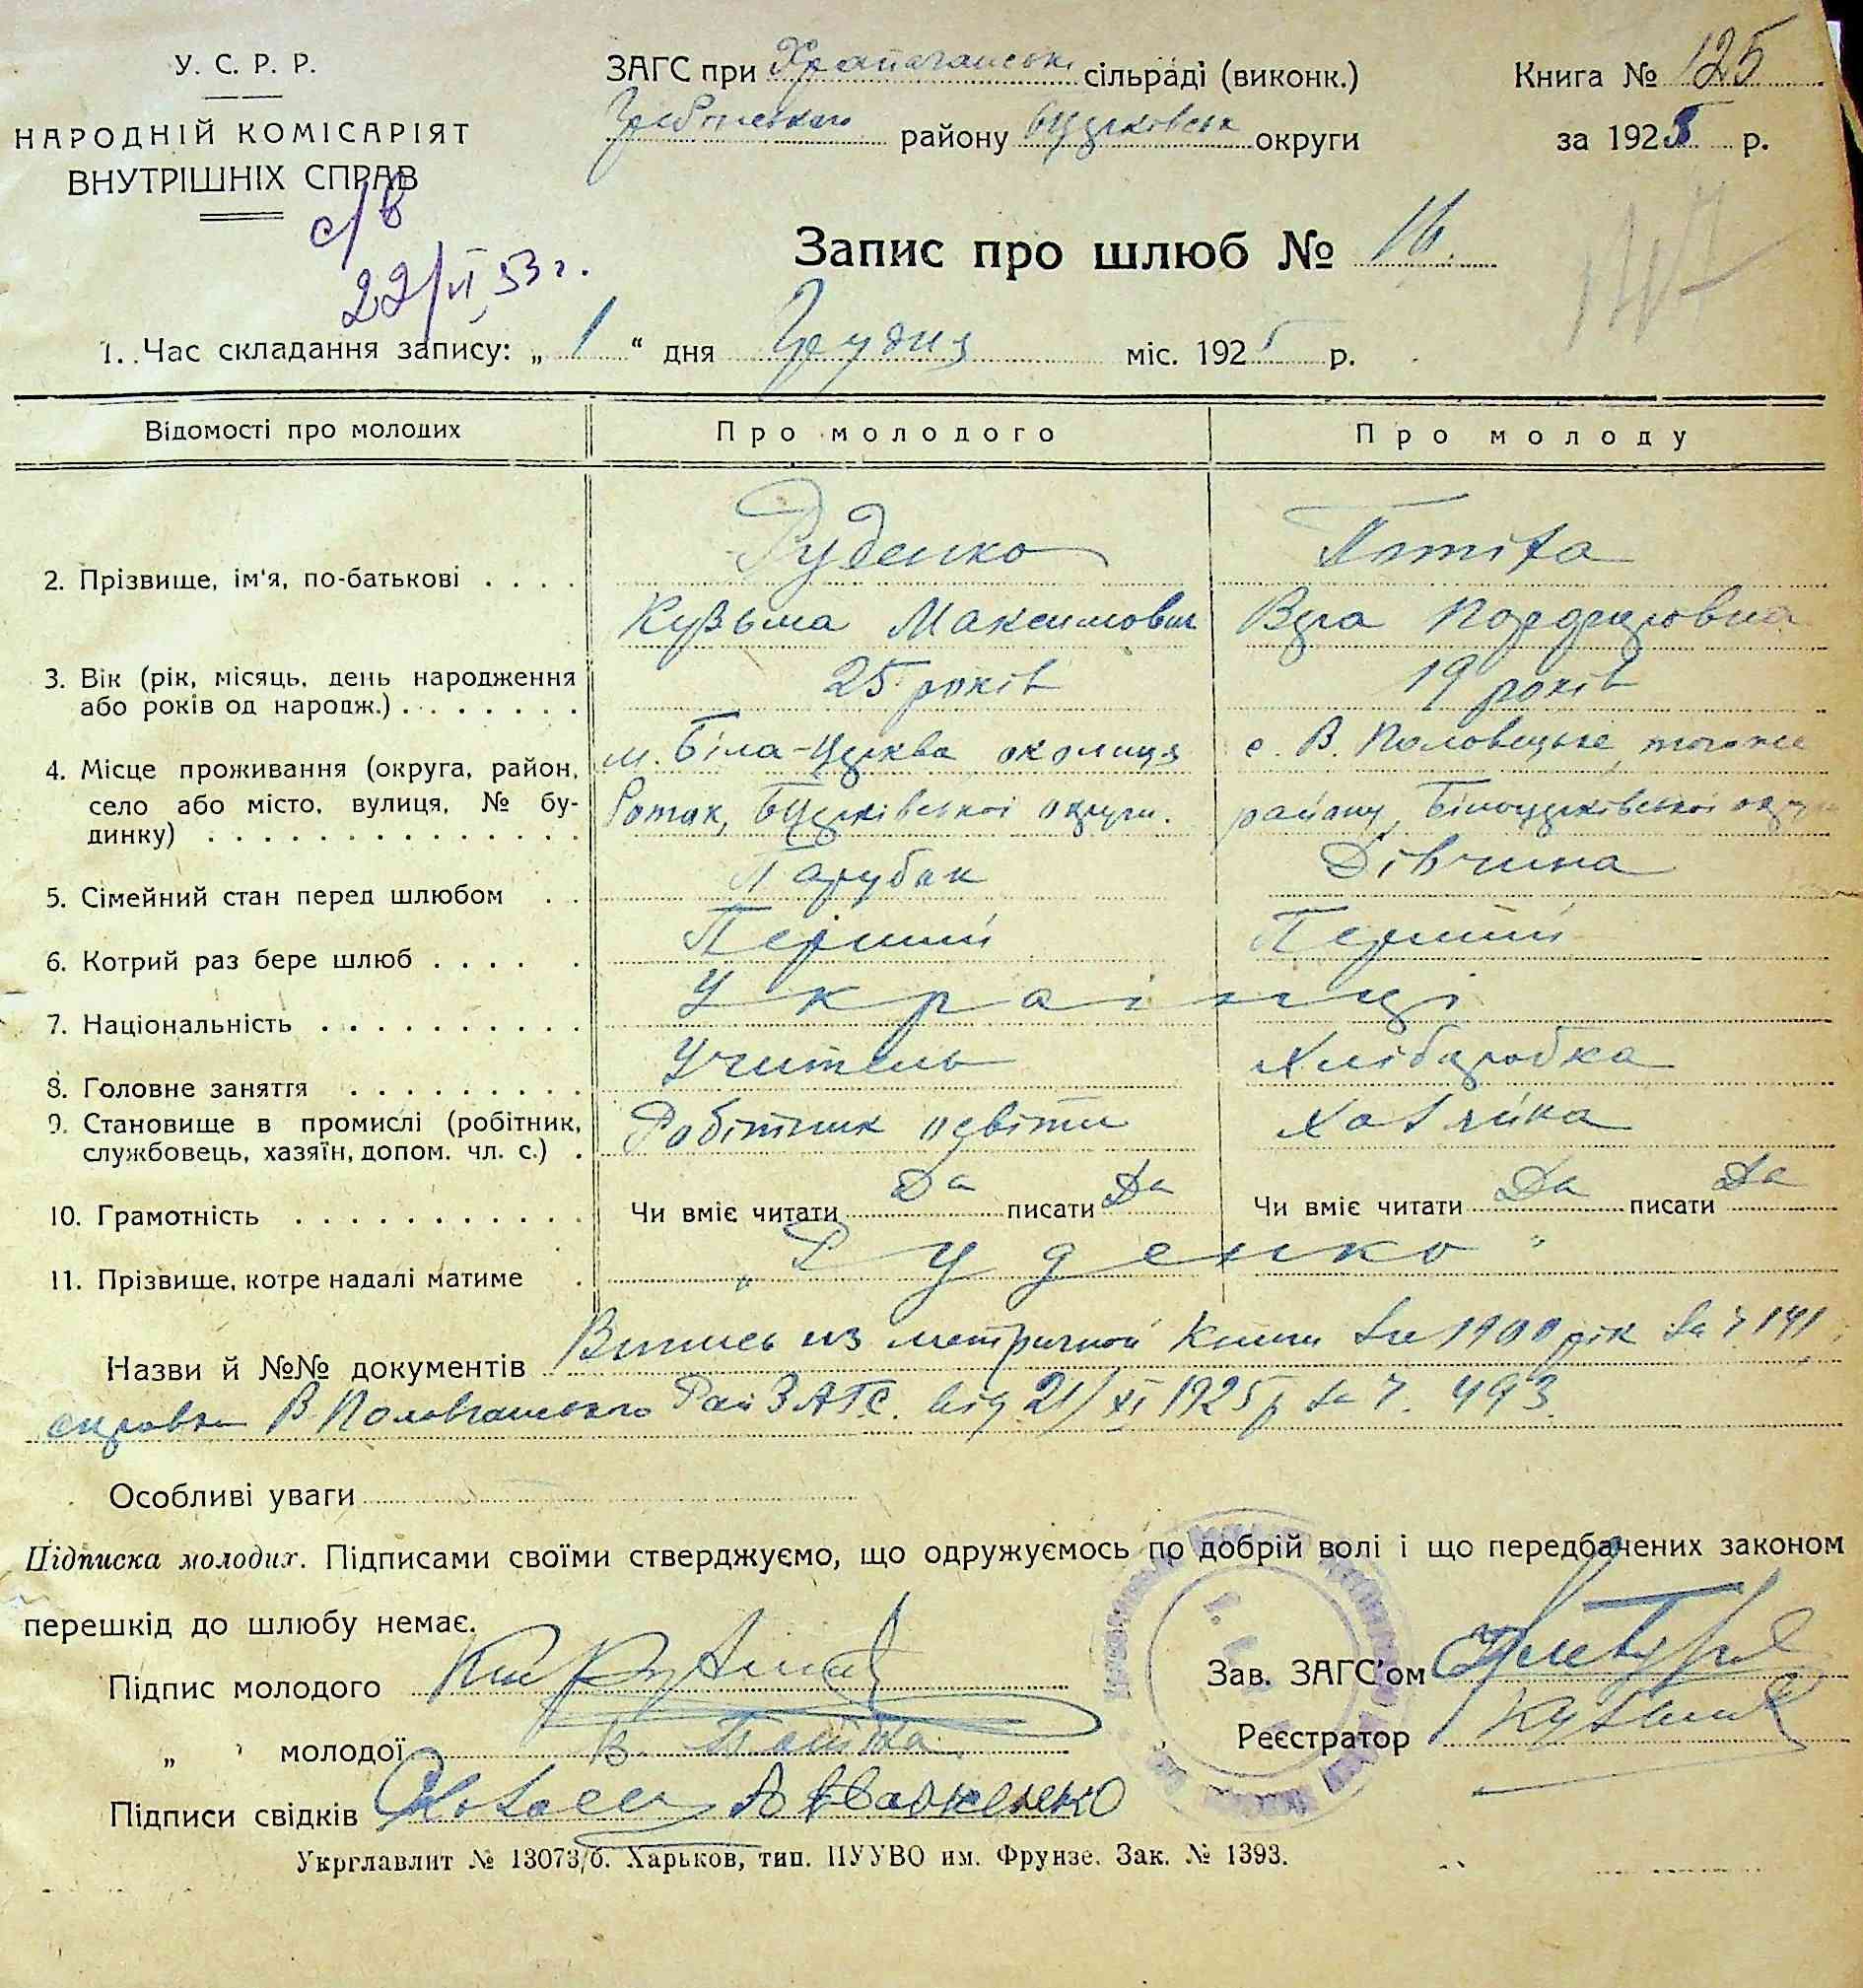 У. С. Р. Р.
НАРОДНІЙ КОМІСАРІЯТ
ВНУТРІШНІХ СПРАВ
с/в
22/VI 53 г.
ЗАГС при сільраді (виконк.)
району округи
Книга № 125
за 1925 р.
147
Запис про шлюб № 16.
1. Час складання запису: „ 1 “ дня Грудня міс. 1925 р.
Відомості про молодих Про молодого Про молоду
Руденко
2. Прізвище, ім'я, по-батькові . . . .
Кузьма Максимович Вера
3. Вік (рік, місяць, день народження або років од народж.) . . . . . . . 25 років 19 років
4. Місце проживання (округа, район, село або місто, вулиця, № будинку) . . . . . . . . . . . . . .
м. Біла-Церква околиця с. В. Половецьке, того же
Роток, БЦерківської округи. району, Білоцерківської
5. Сімейний стан перед шлюбом . . Парубок Дівчина
6. Котрий раз бере шлюб . . . . . Перший Перший
7. Національність . . . . . . . . . . Українці
8. Головне заняття . . . . . . . . . Учитель Хліборобка
9. Становище в промислі (робітник, службовець, хазяїн, допом. чл. с.) . Робітник освіти Хазяйка
10. Грамотність . . . . . . . . . . . . Чи вміє читати Да писати Да Чи вміє читати Да писати Да
11. Прізвище, котре надалі матиме . „ Руденко “
Назви й №№ документів Выпись из метричной книги за 1900 рік за ч 191,
справка В. Половецького РайЗАГС. від 21/XI 1925 р за ч. 493.
Особливі уваги
Підписка молодих. Підписами своїми стверджуємо, що одружуємось по добрій волі і що передбачених законом
перешкід до шлюбу немає.
Підпис молодого
Зав. ЗАГС'ом
„ молодої В.
Реєстратор
Підписи свідків
Укрглавлит № 13073/б. Харьков, тип. ПУУВО им. Фрунзе. Зак. № 1393.